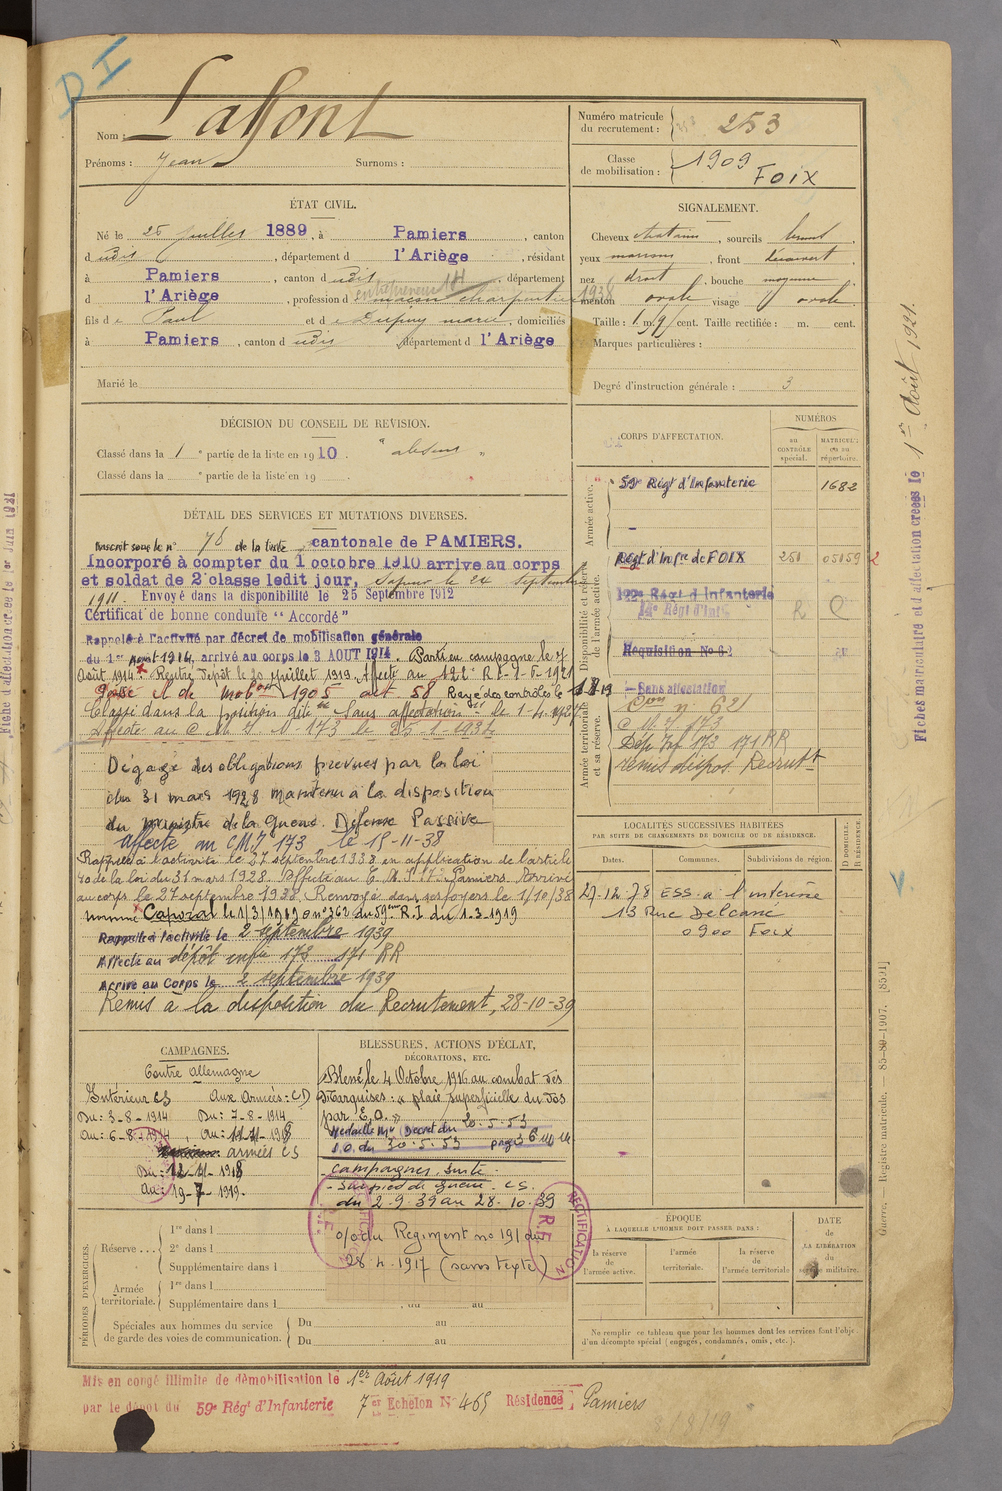 D I
Nom : Laffont
Prénoms : Jean Surnoms :
Numéro matricule du recrutement : 253
Classe de mobilisation : 1909
FOIX
ÉTAT CIVIL.
Né le 25 juillet 1889, à Pamiers, canton
dudit, département d l'Ariège, résidant
à Pamiers, canton dudit, département
d l'Ariège, profession de maçon charpentier
entrepreneur 1938
fils de Paul et de Dupuy marie, domiciliés
à Pamiers, canton dudit, département d l'Ariège
Marié le
SIGNALEMENT.
Cheveux chatains, sourcils bruns,
yeux marrons, front découvert
nez droit, bouche moyenne
menton ovale visage ovale
Taille : 1 m. cent. Taille rectifiée : m. cent.
Marques particulières :
Degré d'instruction générale : 3
DÉCISION DU CONSEIL DE REVISION.
Classé dans la 1e partie de la liste en 1910. "absent"
Classé dans la e partie de la liste en 19
DÉTAIL DES SERVICES ET MUTATIONS DIVERSES.
Inscrit sous le n° 76 de la liste cantonale de PAMIERS.
Incorporé à compter du 1 octobre 1910 arrive au corps
et soldat de 2e classe ledit jour, Sapeur le 24 Septembre
1911. Envoyé dans la disponibilité le 25 Septembre 1912
Certificat de bonne conduite "Accordé"
Rappelé à l'activité par décret de mobilisation générale
du 1er Aout 1914, arrivé au corps le 3 AOUT 1914. Parti en campagne le 7
Août 1914 Rentré dépôt le 20 Juillet 1919. Affecté au 122e R I
Passé cl. de mobon 1905 art 58 Rayé des contrôles le
Classé dans la position dite "Sans affectation" le 1-4-1927
Affecté au C M I N° 173 le 25-1-1934
Dégagé des obligations prevues par la loi
du 31 mars 1928 maintenu à la disposition
du ministre de la guerre. Défense Passive
affecté au C M I 173 le 15-11-38
Rappelé à l'activité le 27 septembre 1938 en application de l'article
40 de la loi du 31 mars 1928. Affecté au C M I 173 Pamiers. Arrivé
au corps le 27 septembre 1938. Renvoyé dans ses foyers le 1/10/38
nommé Caporal le 1/3/1919 o n° 362 du 59ème R.I. du 1-3-1919
Rappelé à l'activité le 2 septembre 1939
Affecté au dépôt infie 173 171 RR
Arrivé au Corps le 2 septembre 1939
Remis à la disposition du Recrutement, 28-10-39
CORPS D'AFFECTATION.
NUMÉROS
au CONTRÔLE spécial.
MATRICULE ou au répertoire.
Armée active.
59e Régt d'Infanterie 1682
Disponibilité et réserve de l'armée active.
Régt d'Infie de FOIX 251 05159
122e Régt d'Infanterie
14e Régt d'Inf
Réquisition No 62
Armée territoriale et sa réserve.
Sans affectation
Con n° 621
C M I 173
Dép Inf 173 171 RR
remis dispos. Recrutt
LOCALITÉS SUCCESSIVES HABITÉES
PAR SUITE DE CHANGEMENTS DE DOMICILE OU DE RÉSIDENCE.
Dates. Communes. Subdivisions de région. D DOMICILE. R RÉSIDENCE.
27.12.78 ESS. à l'intéressé
13 Rue Delcassé
0900 Foix
CAMPAGNES.
Contre allemagne
Intérieur CS Aux Armées : CD
Du : 3-8-1914 Du : 7-8-1914
Au : 6-8-1914, Au : 11-11-1918
armées CS
Du : 12-11-1918
Au : 19-7-1919.
BLESSURES, ACTIONS D'ÉCLAT,
DÉCORATIONS, ETC.
Blessé le 4 Octobre 1916 au combat des
Marquises : "plaie superficielle du dos
par E.O."
Médaille Mre Décret du 20.5.53
J.O. du 30.5.53 page
campagnes suite
Sur pied de guerre CS.
du 2.9.39 au 28.10.39
o/o du Regiment no 191 du
28.4.1917 (sans texte)
RECTIFICATION R.F.
PÉRIODES D'EXERCICES.
Réserve....
1re dans l
2e dans l
Supplémentaire dans l
Armée territoriale.
1re dans l
Supplémentaire dans l , du au
Spéciales aux hommes du service de garde des voies de communication.
Du au
Du au
ÉPOQUE
À LAQUELLE L'HOMME DOIT PASSER DANS :
la réserve de l'armée active.
l'armée territoriale.
la réserve de l'armée territoriale
DATE de LA LIBÉRATION du service militaire.
Ne remplir ce tableau que pour les hommes dont les services font l'objet
d'un décompte spécial (engagés, condamnés, omis, etc.).
Mis en congé illimité de démobilisation le 1er Août 1919
par le dépôt du 59e Régt d'Infanterie 7er Echelon N° 465 Résidence Pamiers
Fiches matriculaire et d'affectation créées le 1er Août 1921.
Guerre. — Registre matricule. — 85-89-1907. [8521]